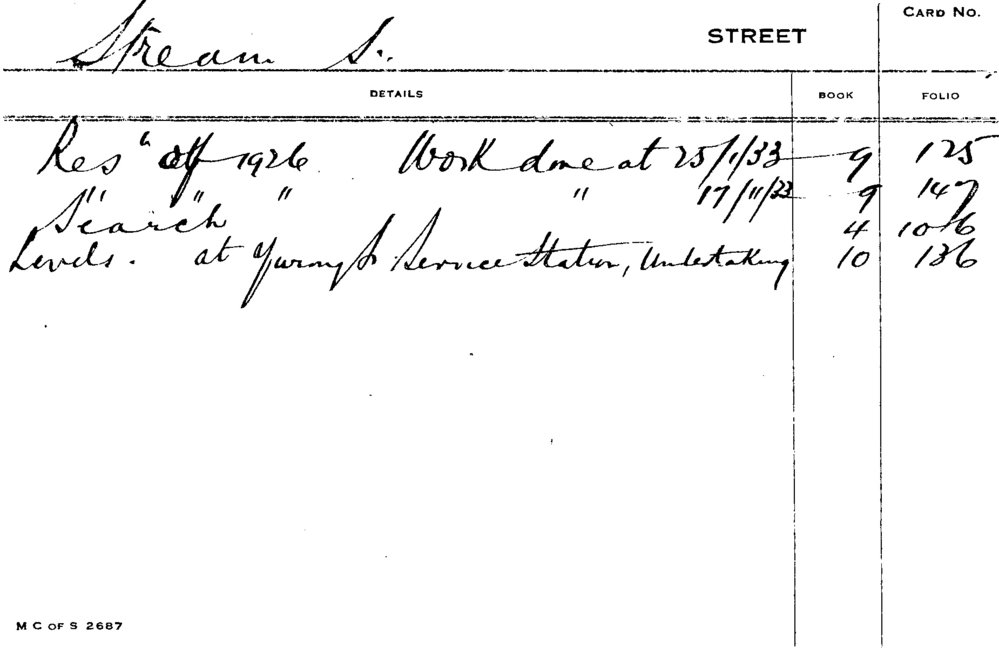 CARD NO.
Stream S. STREET
DETAILS BOOK FOLIO
Res n of 1926 Work done at 25/1/33 9 125
" " " " 17/11/33 9 147
Search 4 1016
Levels. at Yurong S Service Station, Undertaking 10 136
M C OF S 2687